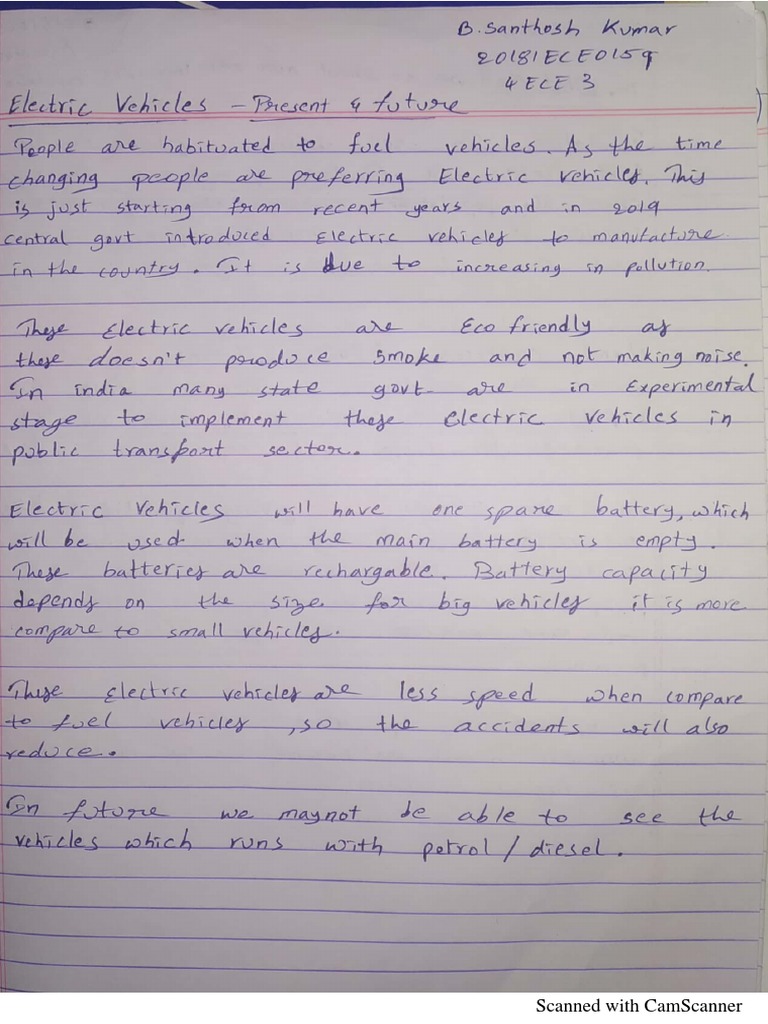 B. Santhosh Kumar
20181ECE0159
4 ECE 3
Electric Vehicles - Present & future
People are habituated to fuel vehicles. As the time
changing people are preferring Electric vehicles. This
is just starting from recent years and in 2019
central govt introduced Electric vehicles to manufacture
in the country. It is due to increasing in pollution.
These Electric vehicles are Eco friendly as
these doesn't produce smoke and not making noise.
In india many state govt are in Experimental
stage to implement these Electric vehicles in
public transport sector.
Electric Vehicles will have one spare battery, which
will be used when the main battery is empty.
These batteries are rechargable. Battery capacity
depends on the size. for big vehicles it is more
compare to small vehicles.
These Electric vehicles are less speed when compare
to fuel vehicles, so the accidents will also
reduce.
In future we maynot be able to see the
vehicles which runs with petrol / diesel.
Scanned with CamScanner